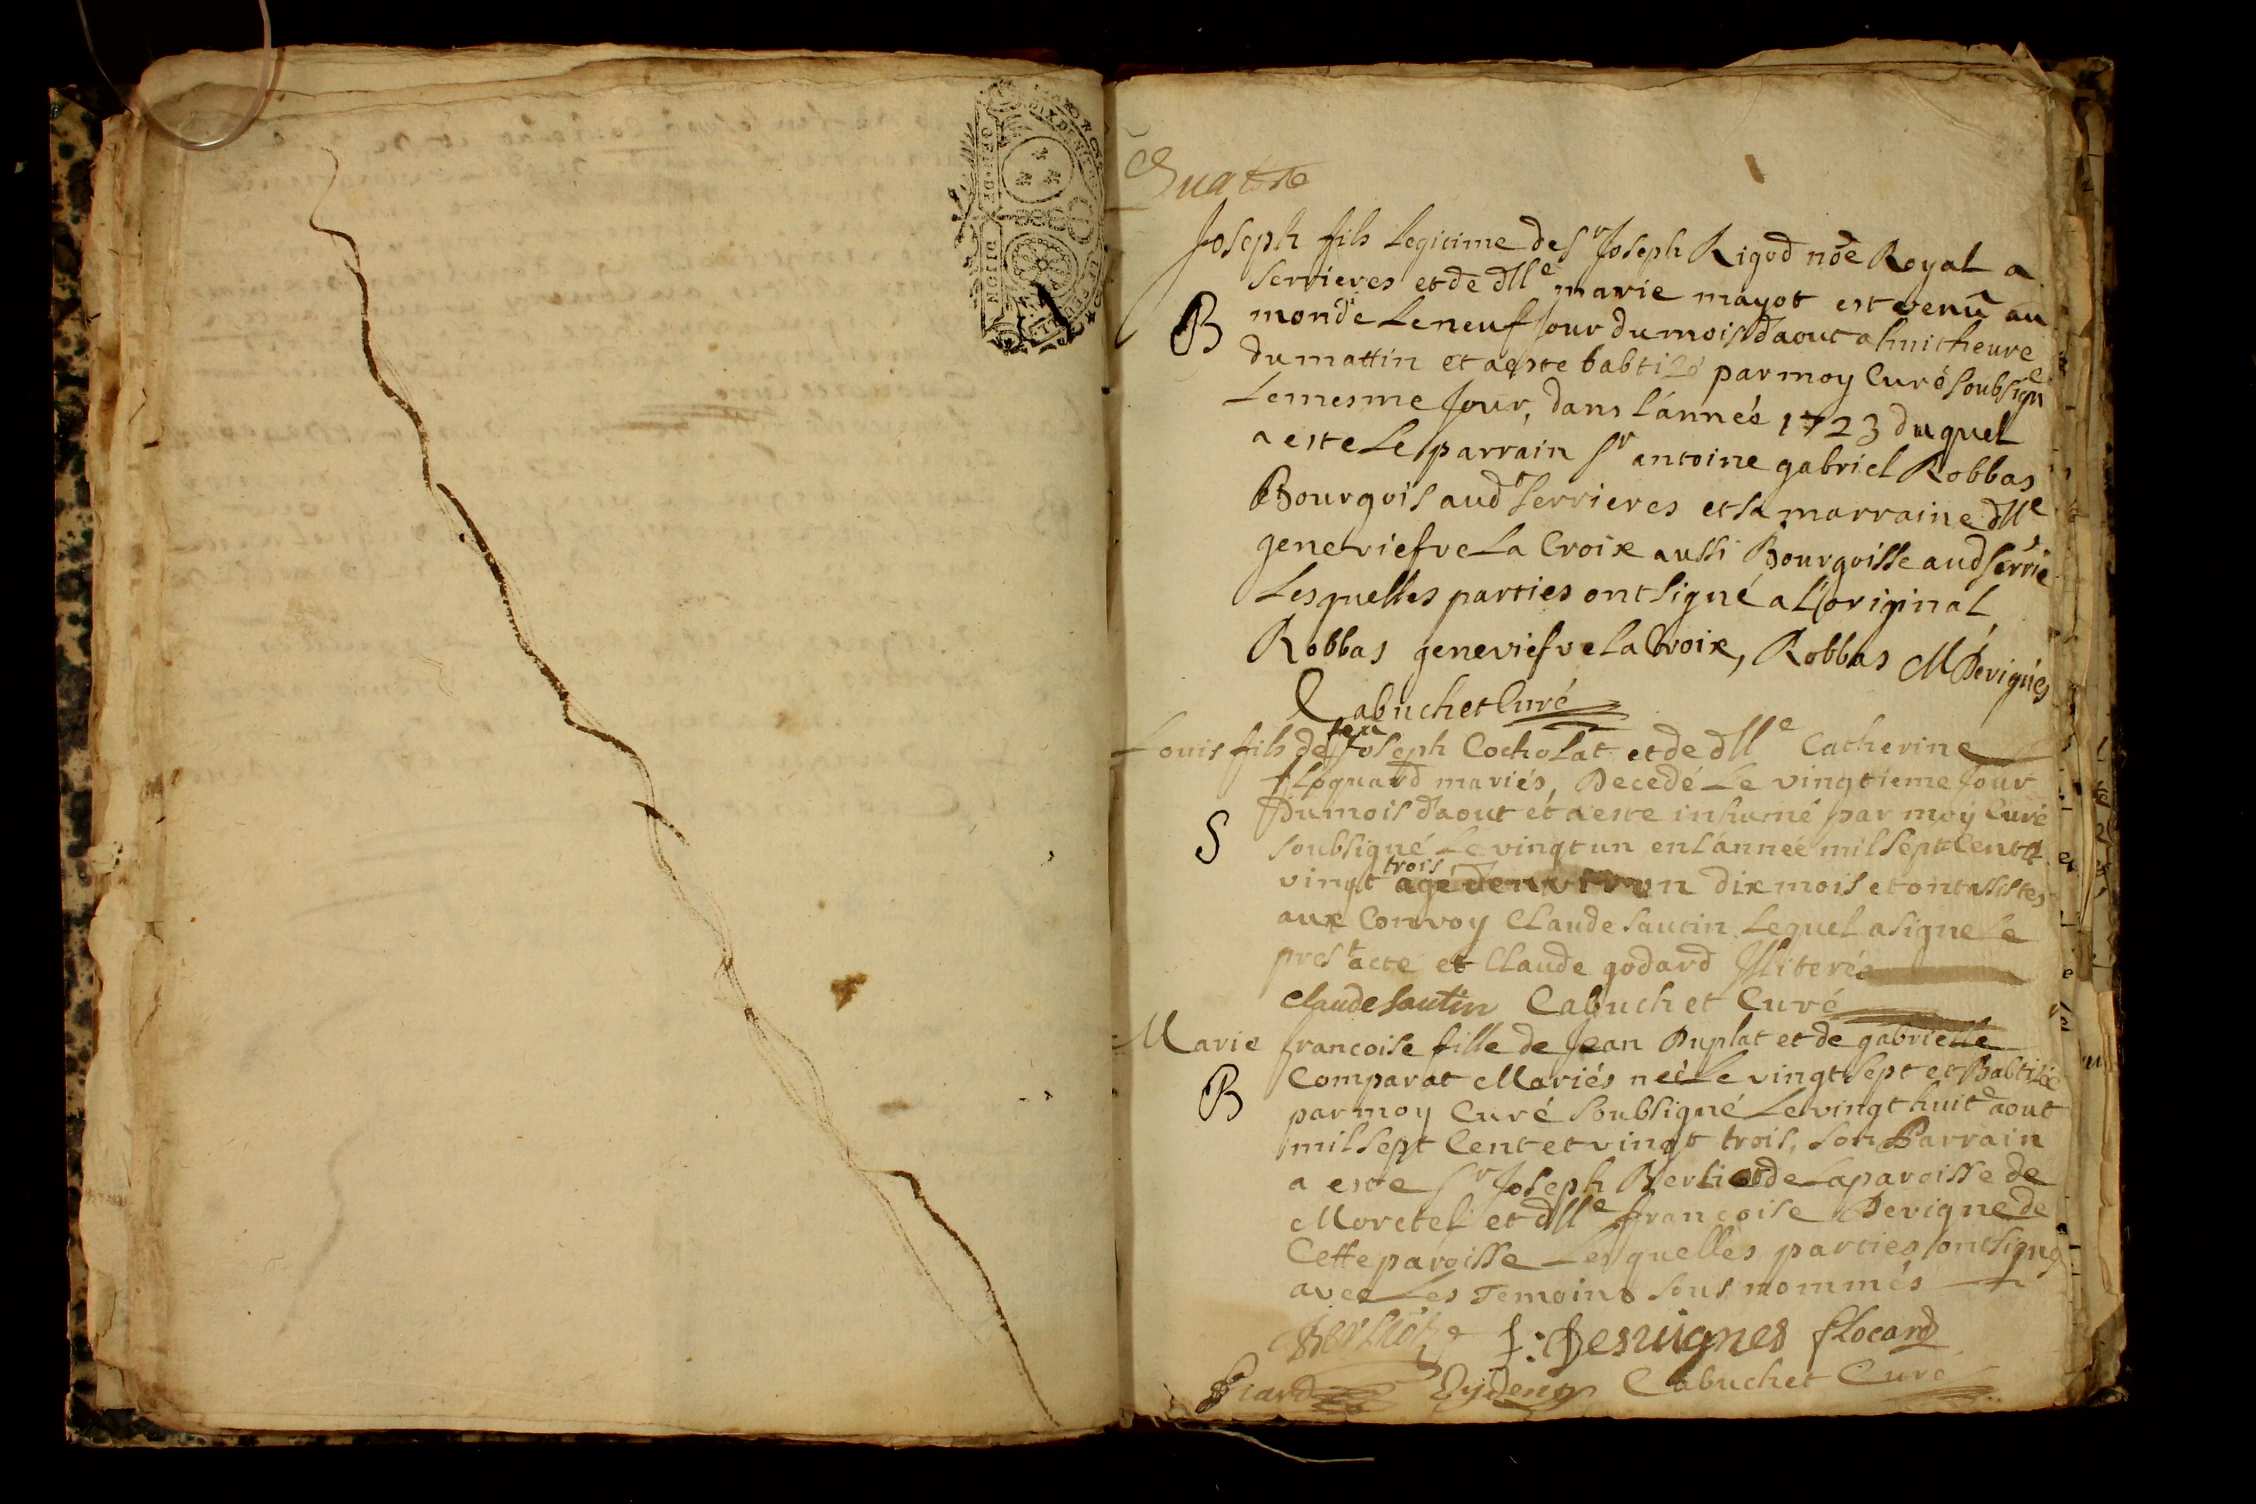 Quatre
Joseph fils Legitime de Sr Joseph Rigod nõe Royal a
Serrieres et de dlle marie mayot est venu au
B monde Le neuf Jour du mois daout a huit heure
du mattin et a este babtizé par moy Curé soubsigné
Le mesme Jour, dans l'année 1723 duquel
a este Le parrain Sr antoine gabriel Robbas
Bourgois aud Serrieres et sa marraine dlle
genetriefve La Croix aussi Bourgoisse aud Serrie
Lesquelles parties ont signé a L'original,
Robbas genevief ve La Croix, Robbas M Devignes
Cabuchet Curé
Louis fils de feu Joseph Cocholat et de dlle Catherine
floquard mariés, Decedé Le vingtieme Jour
S Du mois daout et a este inhumé par moy Curé
soubsigné Le vingt un en l'année mil sept Cents
vingt trois agé denviron dix mois et ont assistes
aux Convoy Claude Sautin Lequel a signe Le
prest acte et Claude godard Illiterés
Claude Sautin Cabuchet Curé
Marie francoise fille de Jean Duplat et de gabrielle
Comparat Mariés neé Le vingt sept et Babtizée
B par moy Curé soubsigné Le vingt huit aout
mil sept Cent et vingt trois, son Parrain
a este Sr Joseph Berliot de La paroisse de
Moretel et dlle francoise Devigne de
Cette paroisse Lesquelles parties ont signé
avec Les Temoins sous nommés
Berliot f: Desuignes flocard
Piard Cabuchet Curé